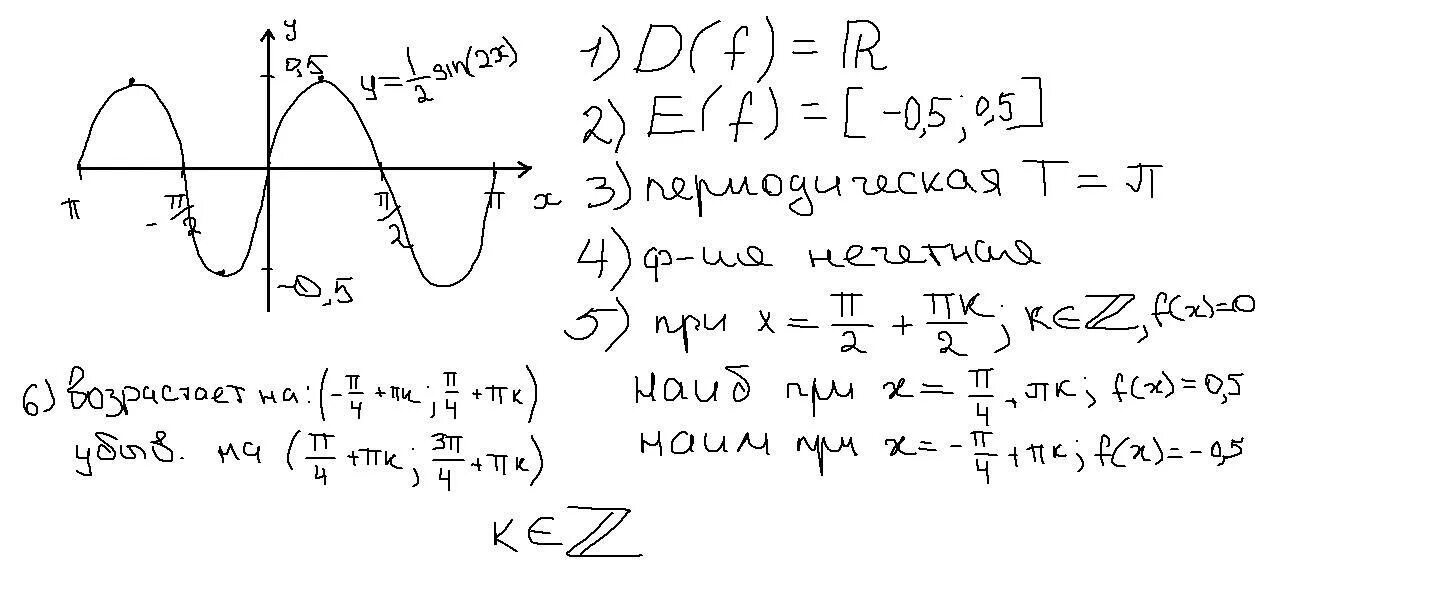 y
0,5
y = 1/2 sin(2x)
π
-π/2
π/2
π
x
-0,5
1) D(f) = ℝ
2) E(f) = [-0,5; 0,5]
3) периодическая T = π
4) ф-ия нечетная
5) при x = π/2 + πк/2; к∈ℤ, f(x)=0
наиб при x = π/4 + πк; f(x) = 0,5
наим при x = -π/4 + πк; f(x) = -0,5
6) возрастает на: (-π/4 + πк; π/4 + πк)
убыв. на (π/4 + πк; 3π/4 + πк)
к∈ℤ